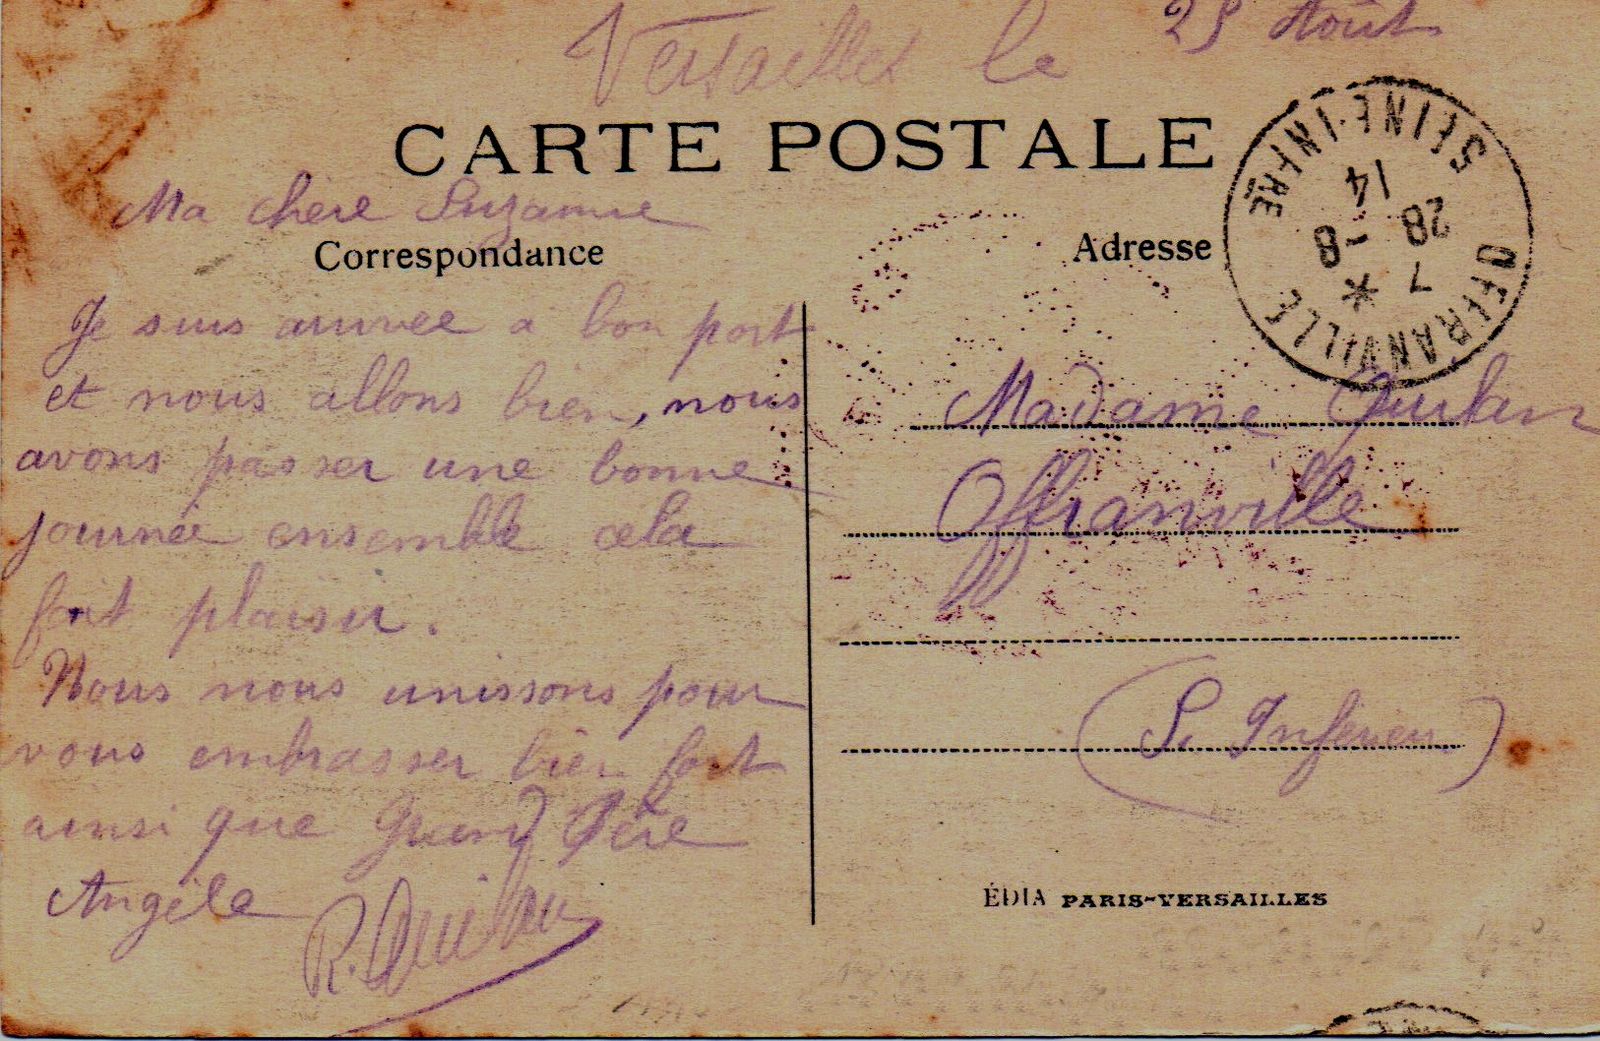 Versailles le 25 Août
CARTE POSTALE
Ma chère Suzanne
Correspondance
Je suis arrivée a bon port
et nous allons bien, nous
avons passer une bonne
journée ensemble cela
fait plaisir.
Nous nous unissons pour
vous embrasser bien fort
ainsi que Grand Père
Angèle
R.
Adresse
SEINE-INFRE
OFFRANVILLE
7 *
28 -8
14
Madame
Offranville
(S. Inférieu)
ÉDIA PARIS-VERSAILLES